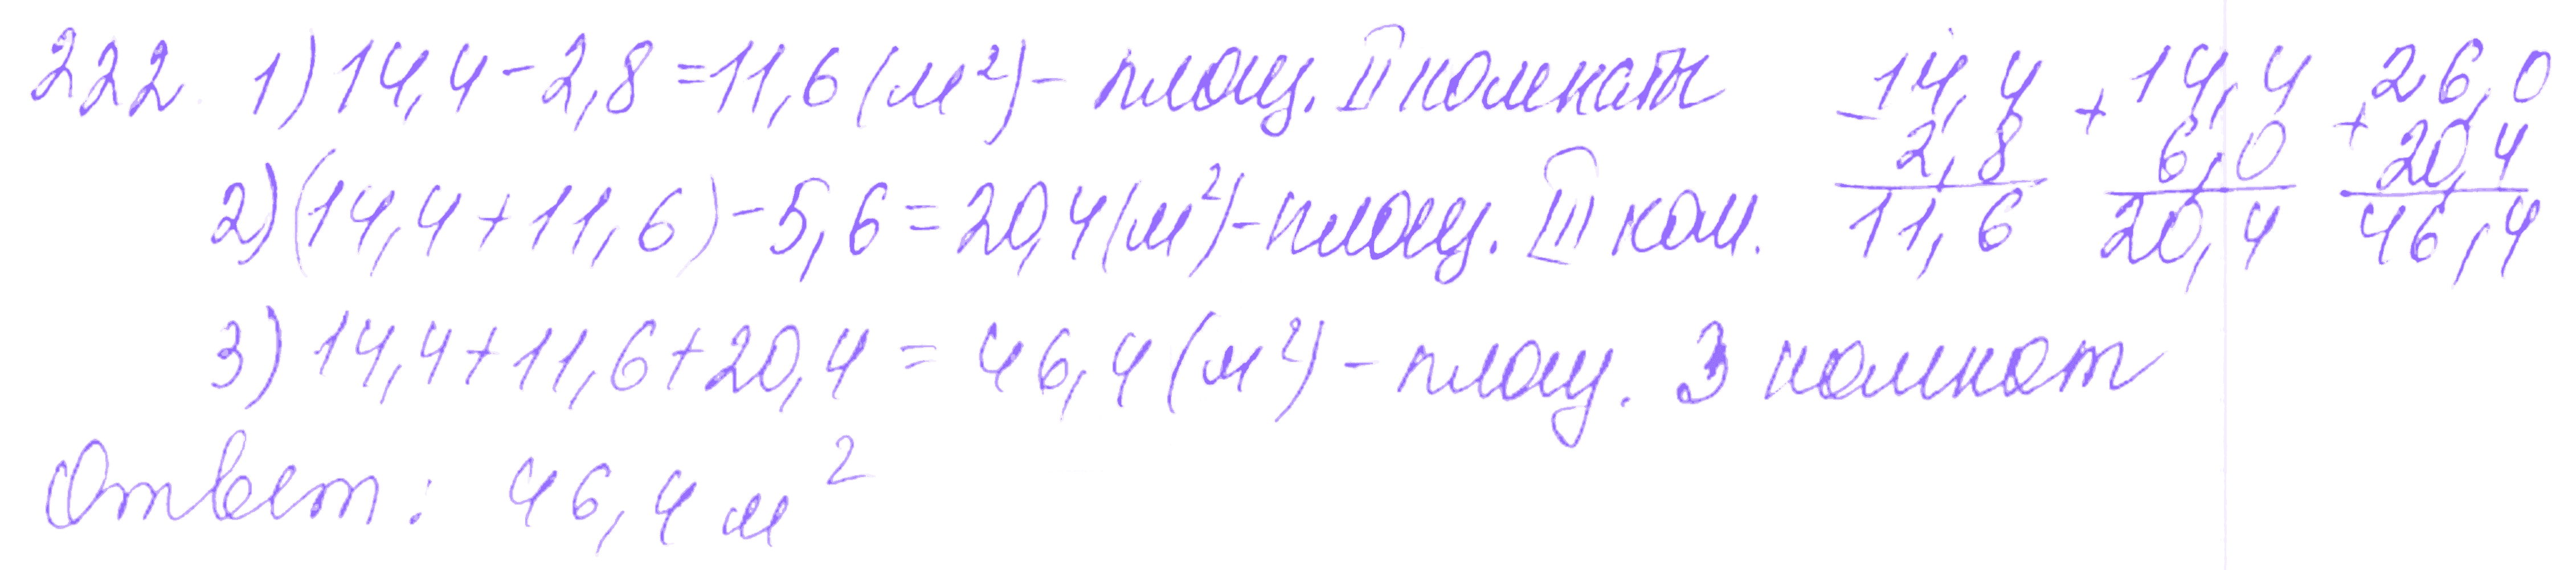 222. 1) 14,4 - 2,8 = 11,6 (м²) - площ. II комнаты
2) (14,4 + 11,6) - 5,6 = 20,4 (м²) - площ. III ком.
3) 14,4 + 11,6 + 20,4 = 46,4 (м²) - площ. 3 комнат
Ответ: 46,4 м²
- 14,4 + 14,4 + 26,0
2,8 6,0 20,4
11,6 20,4 46,4